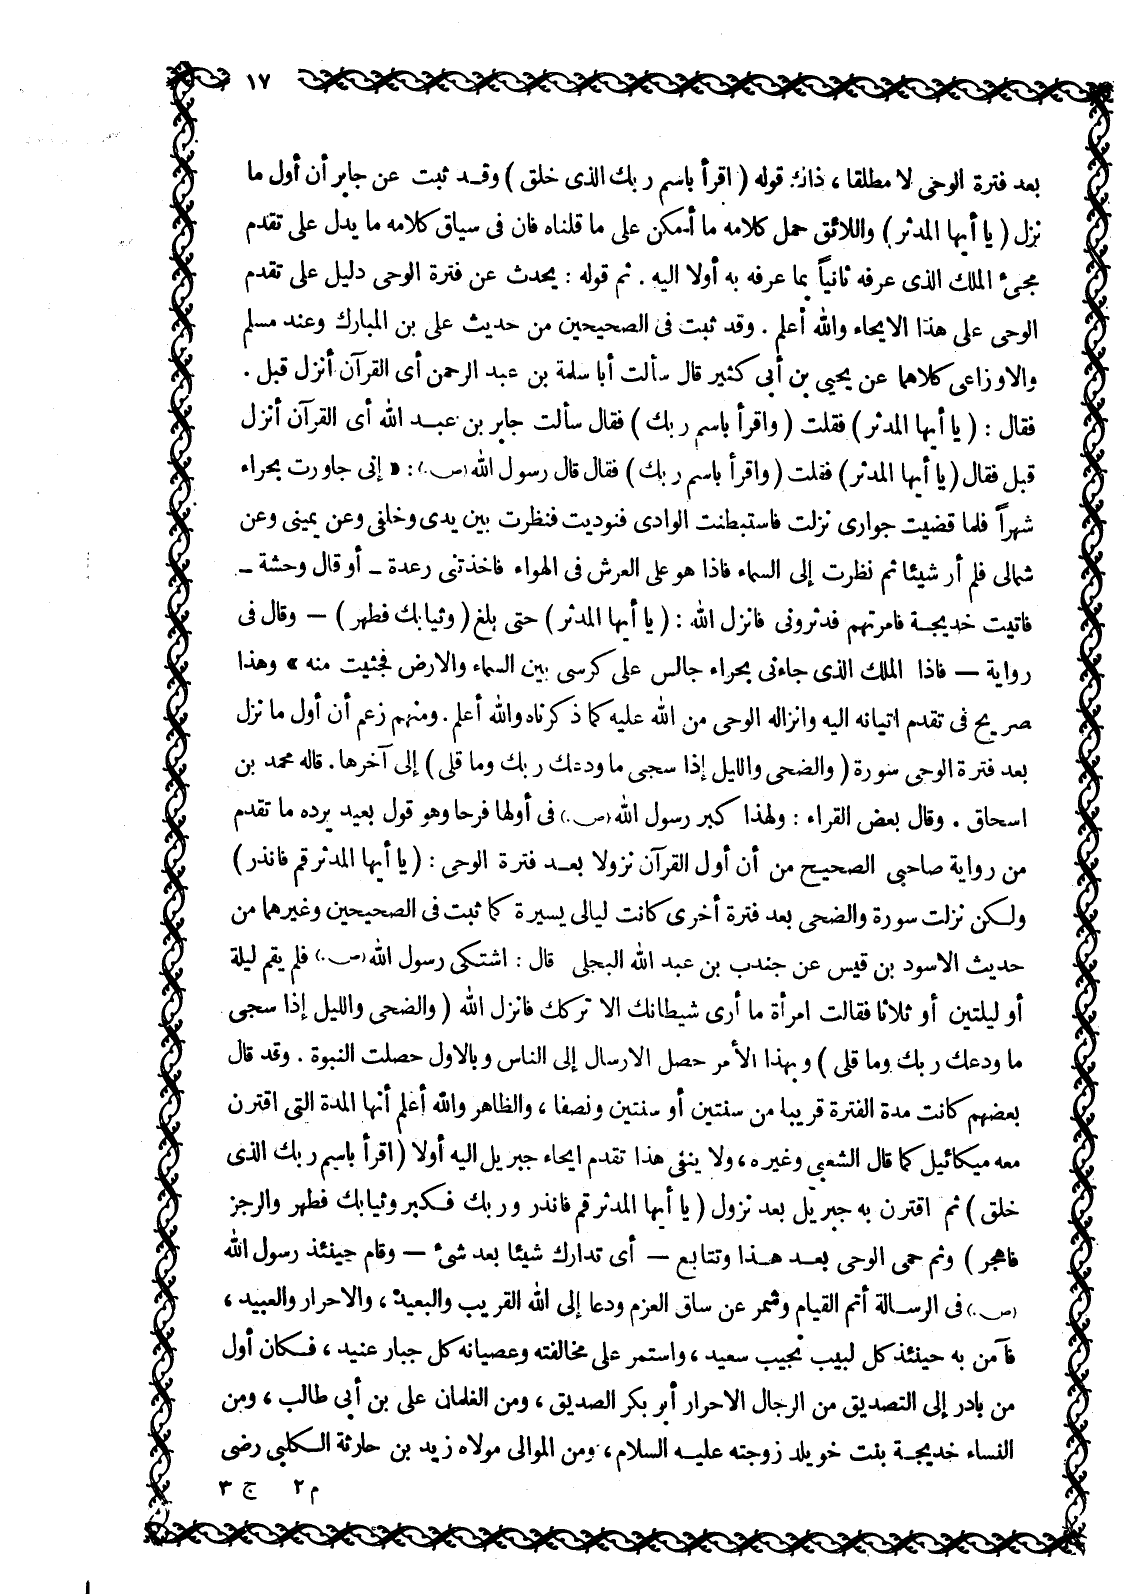 ١٧
بعد فترة الوحى لا مطلقا ، ذاك قوله ( اقرأ باسم ربك الذى خلق ) وقد ثبت عن جابر أن أول ما
نزل ( يا أيها المدثر ) واللائق حمل كلامه ما أمكن على ما قلناه فان فى سياق كلامه ما يدل على تقدم
مجىء الملك الذى عرفه ثانياً بما عرفه به أولا اليه . ثم قوله : يحدث عن فترة الوحى دليل على تقدم
الوحى على هذا الايحاء والله أعلم . وقد ثبت فى الصحيحين من حديث على بن المبارك وعند مسلم
والاوزاعى كلاهما عن يحيى بن أبى كثير قال سألت أبا سلمة بن عبد الرحمن أى القرآن أنزل قبل .
فقال : ( يا أيها المدثر ) فقلت ( واقرأ باسم ربك ) فقال سألت جابر بن عبد الله أى القرآن أنزل
قبل فقال ( يا أيها المدثر ) فقلت ( واقرأ باسم ربك ) فقال قال رسول الله (ص) : « إنى جاورت بحراء
شهراً فلما قضيت جوارى نزلت فاستبطنت الوادى فنوديت فنظرت بين يدى وخلفى وعن يمينى وعن
شمالى فلم أر شيئا ثم نظرت إلى السماء فاذا هو على العرش فى الهواء فاخذتنى رعدة ـ أو قال وحشة ـ
فاتيت خديجة فامرتهم فدثرونى فانزل الله : ( يا أيها المدثر ) حتى بلغ ( وثيابك فطهر ) — وقال فى
رواية — فاذا الملك الذى جاءنى بحراء جالس على كرسى بين السماء والارض فجثيت منه » وهذا
صريح فى تقدم اتيانه اليه وانزاله الوحى من الله عليه كما ذكرناه والله أعلم . ومنهم زعم أن أول ما نزل
بعد فترة الوحى سورة ( والضحى والليل إذا سجى ما ودعك ربك وما قلى ) إلى آخرها . قاله محمد بن
اسحاق . وقال بعض القراء : ولهذا كبر رسول الله (ص) فى أولها فرحا وهو قول بعيد يرده ما تقدم
من رواية صاحبى الصحيح من أن أول القرآن نزولا بعد فترة الوحى : ( يا أيها المدثر قم فانذر )
ولكن نزلت سورة والضحى بعد فترة أخرى كانت ليالى يسيرة كما ثبت فى الصحيحين وغيرهما من
حديث الاسود بن قيس عن جندب بن عبد الله البجلى قال : اشتكى رسول الله (ص) فلم يقم ليلة
أو ليلتين أو ثلاثا فقالت امرأة ما أرى شيطانك الا تركك فانزل الله ( والضحى والليل إذا سجى
ما ودعك ربك وما قلى ) وبهذا الأمر حصل الارسال إلى الناس وبالاول حصلت النبوة . وقد قال
بعضهم كانت مدة الفترة قريبا من سنتين أو سنتين ونصفا ، والظاهر والله أعلم أنها المدة التى اقترن
معه ميكائيل كما قال الشعبي وغيره ، ولا ينفى هذا تقدم ايحاء جبريل اليه أولا ( اقرأ باسم ربك الذى
خلق ) ثم اقترن به جبريل بعد نزول ( يا أيها المدثر قم فانذر وربك فكبر وثيابك فطهر والرجز
فاهجر ) وثم حمى الوحى بعد هذا وتتابع — أى تدارك شيئا بعد شىء — وقام حينئذ رسول الله
(ص) فى الرسالة أتم القيام وشمر عن ساق العزم ودعا إلى الله القريب والبعيد ، والاحرار والعبيد ،
فآمن به حينئذ كل لبيب نجيب سعيد ، واستمر على مخالفته وعصيانه كل جبار عنيد ، فكان أول
من بادر إلى التصديق من الرجال الاحرار أبو بكر الصديق ، ومن الغلمان على بن أبى طالب ، ومن
النساء خديجة بنت خويلد زوجته عليه السلام ، ومن الموالى مولاه زيد بن حارثة الكلبى رضى
م ٢ ج ٣